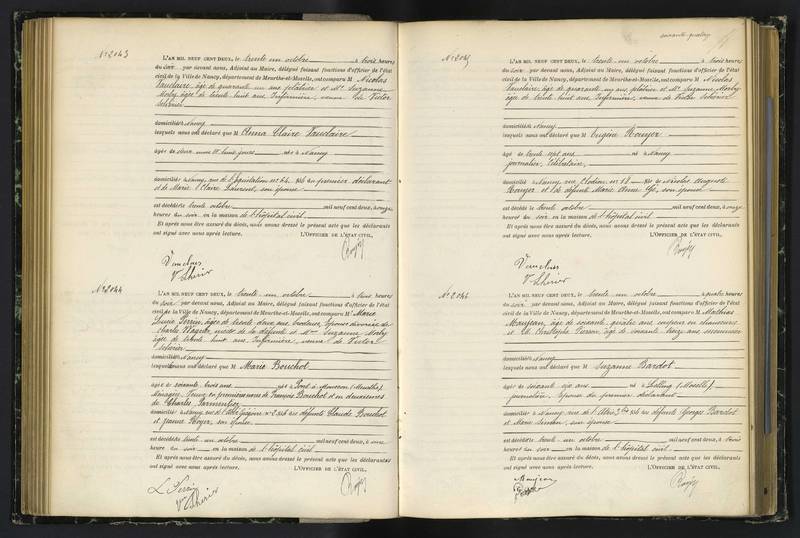 soixante-quatorze
N° 2043
L'AN MIL NEUF CENT DEUX, le trente un octobre à trois heures
du soir par devant nous, Adjoint au Maire, délégué faisant fonctions d'officier de l'état
civil de la Ville de Nancy, département de Meurthe-et-Moselle, ont comparu M Nicolas
Vauclaire, âgé de quarante un ans, et Me Suzanne
Morly âgée de trente huit ans Infirmière, veuve de Victor
domiciliés à Nancy
lesquels nous ont déclaré que M Anna Claire Vauclaire
âgée de deux mois huit jours née à Nancy
domiciliée à Nancy, rue de l'Equitation n° 64, fille du premier déclarant
et de Marie Claire Laurent, son épouse
est décédée trente octobre mil neuf cent deux, à onze
heures du soir en la maison de l'hôpital civil
Et après nous être assuré du décès, nous avons dressé le présent acte que les déclarants
ont signé avec nous après lecture. L'OFFICIER DE L'ÉTAT CIVIL,
N° 2044
L'AN MIL NEUF CENT DEUX, le trente un octobre à trois heures
du soir par devant nous, Adjoint au Maire, délégué faisant fonctions d'officier de l'état
civil de la Ville de Nancy, département de Meurthe-et-Moselle, ont comparu M Marie
Lucie Perrin, âgée de trente deux ans, brodeuse, épouse divorcée de
Charles Wagner, nièce de la défunte et Me Suzanne Morly
âgée de trente huit ans Infirmière, veuve de Victor
domiciliés à Nancy
lesquels nous ont déclaré que M Marie Bouchot
âgée de soixante trois ans née à Pont à Mousson (Meurthe)
Ménagère, Veuve en premières noces de François Bouchot et en deuxièmes
de Charles Parmentier
domiciliée à Nancy, rue de l'Abbé Grégoire n° 2 fille des défunts Claude Bouchot
et Jeanne Royer, son épouse
est décédée trente un octobre mil neuf cent deux, à une
heure du soir en la maison de l'hôpital civil
Et après nous être assuré du décès, nous avons dressé le présent acte que les déclarants
ont signé avec nous après lecture. L'OFFICIER DE L'ÉTAT CIVIL,
L. Perrin
N° 2045
L'AN MIL NEUF CENT DEUX, le trente un octobre à trois heures
du soir par devant nous, Adjoint au Maire, délégué faisant fonctions d'officier de l'état
civil de la Ville de Nancy, département de Meurthe-et-Moselle, ont comparu M Nicolas
Vauclaire, âgé de quarante un ans et Me Suzanne Morly
âgée de trente huit ans Infirmière, veuve de Victor
domiciliés à Nancy
lesquels nous ont déclaré que M Eugène Rouyer
âgé de trente sept ans né à Nancy
journalier, Célibataire,
domicilié à Nancy, rue Clodion n° 18 fils de Nicolas Auguste
Rouyer et de défunte Marie Anne son épouse
est décédé le trente octobre mil neuf cent deux, à onze
heures du soir en la maison de l'hôpital civil
Et après nous être assuré du décès, nous avons dressé le présent acte que les déclarants
ont signé avec nous après lecture. L'OFFICIER DE L'ÉTAT CIVIL,
N° 2046
L'AN MIL NEUF CENT DEUX, le trente un octobre à quatre heures
du soir par devant nous, Adjoint au Maire, délégué faisant fonctions d'officier de l'état
civil de la Ville de Nancy, département de Meurthe-et-Moselle, ont comparu M Mathias
Maujean, âgé de soixante quatre ans coupeur en chaussures
et M. Christophe Pierson, âgé de soixante treize ans
domiciliés à Nancy
lesquels nous ont déclaré que M Suzanne Bardot
âgée de soixante six ans née à (Moselle)
journalière, épouse du premier déclarant
domiciliée à Nancy, rue de l'Atrie 3 bis fille des défunts Georges Bardot
et Marie son épouse
est décédée trente un octobre mil neuf cent deux, à trois
heures du soir en la maison de l'hôpital civil
Et après nous être assuré du décès, nous avons dressé le présent acte que les déclarants
ont signé avec nous après lecture. L'OFFICIER DE L'ÉTAT CIVIL,
Maujean